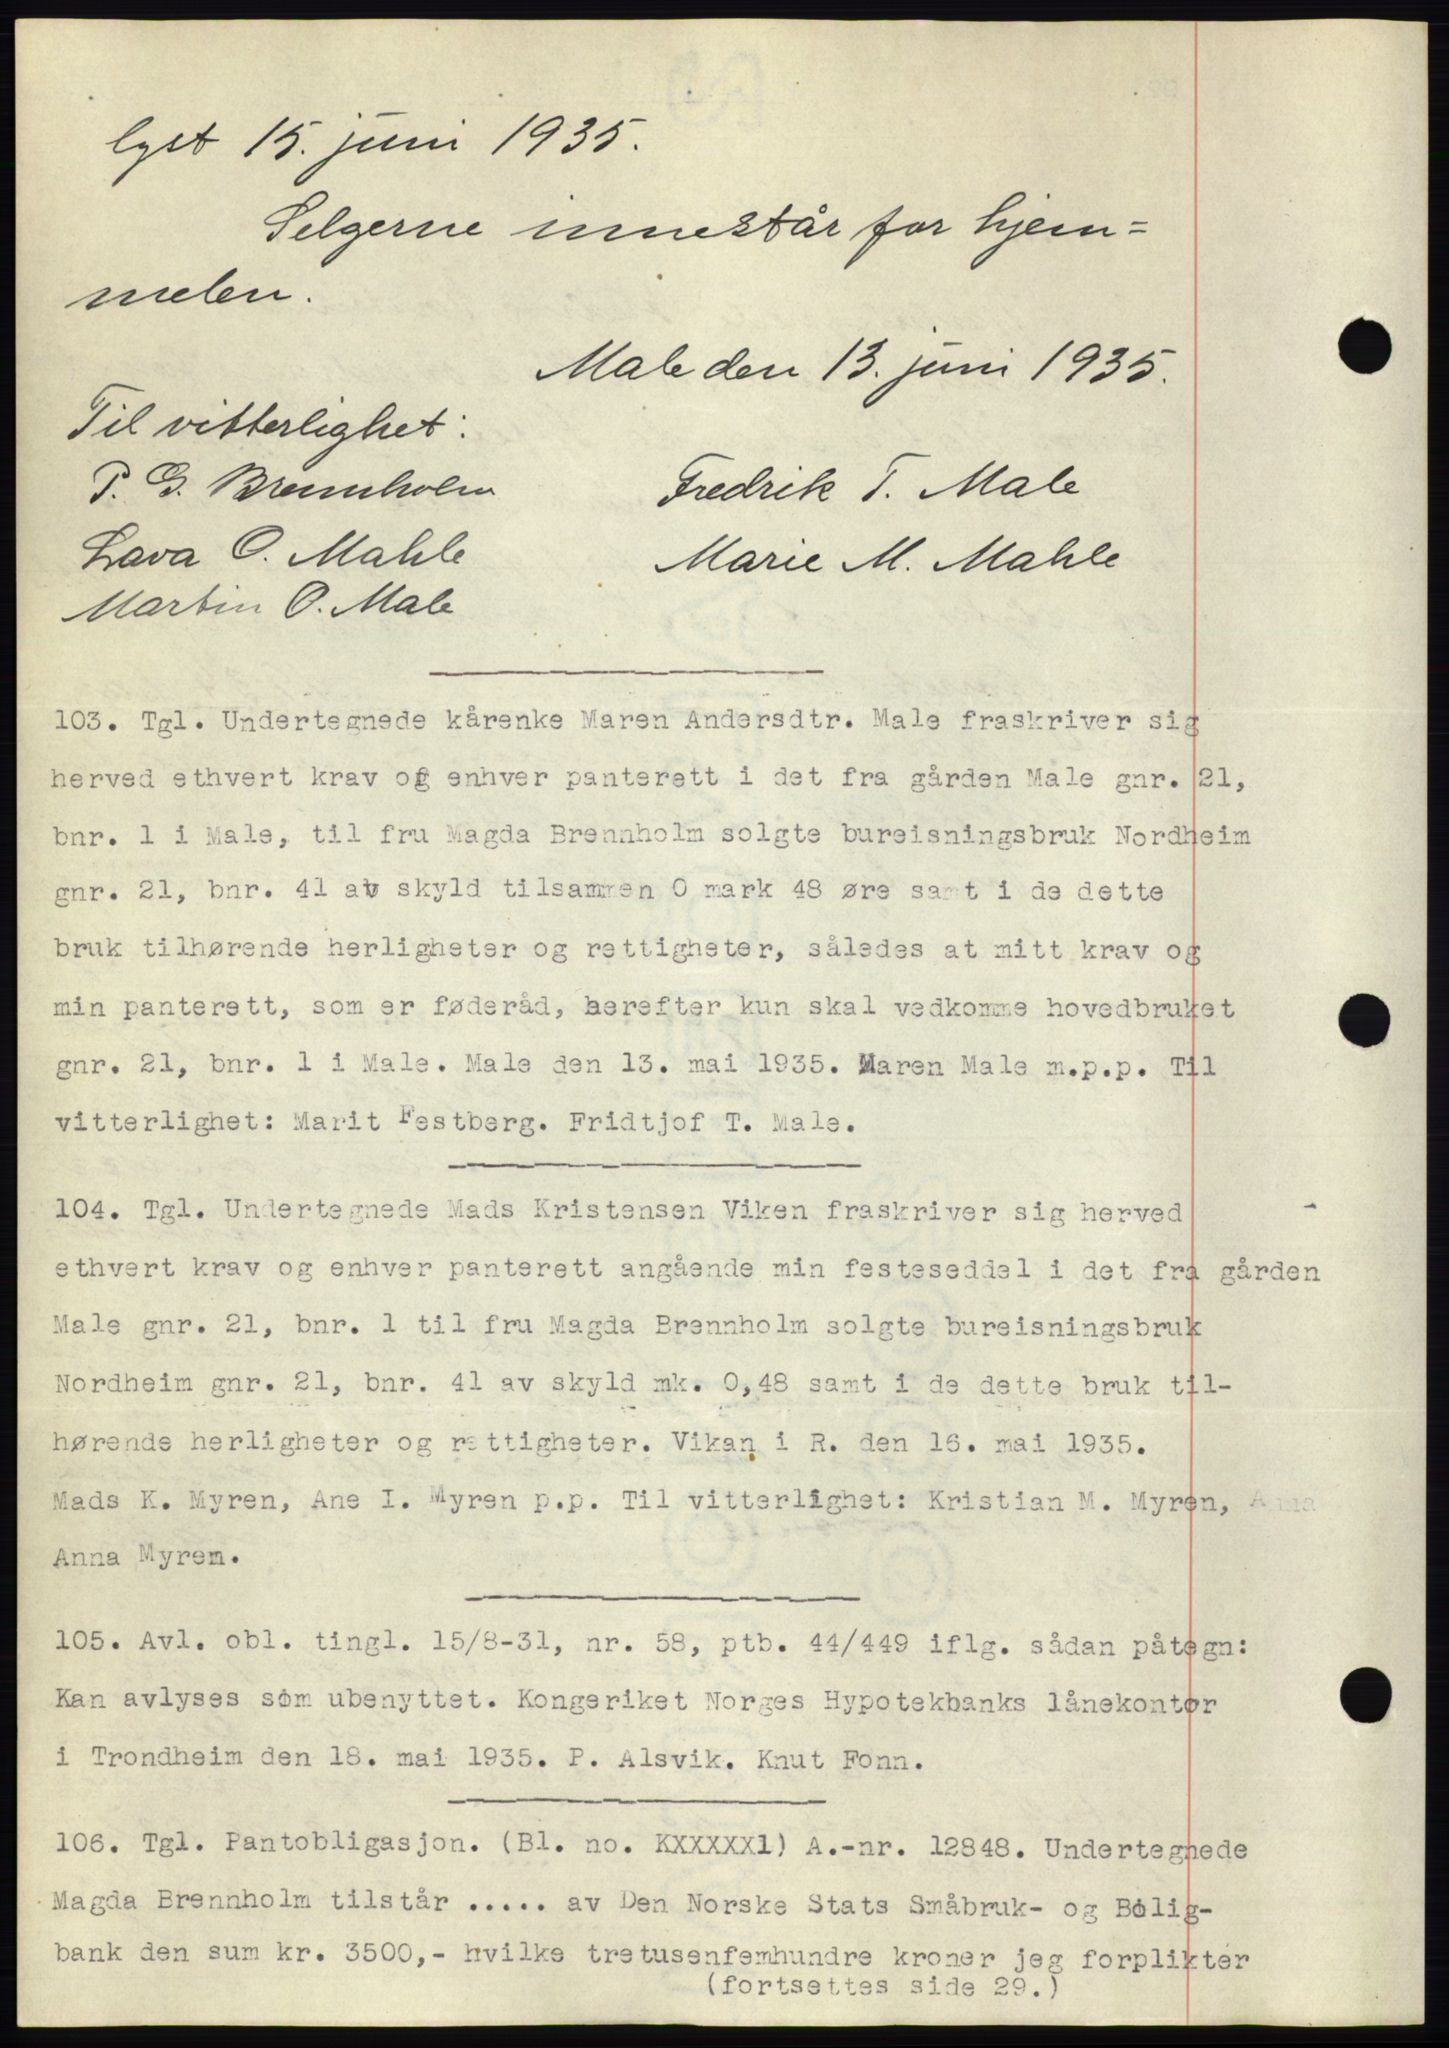 lyst 15. juni 1935.
Selgerne innestår for hjem=
melen.
Male den 13. juni 1935.
Til vitterlighet:
P. G. Brennholm
Fredrik T. Male
Lava O. Mahle
Marie M. Mahle
Martin O. Male
103. Tgl. Undertegnede kårenke Maren Andersdtr. Male fraskriver sig
herved ethvert krav og enhver panterett i det fra gården Male gnr. 21,
bnr. 1 i Male, til fru Magda Brennholm solgte bureisningsbruk Nordheim
gnr. 21, bnr. 41 av skyld tilsammen 0 mark 48 øre samt i de dette
bruk tilhørende herligheter og rettigheter, således at mitt krav og
min panterett, som er føderåd, herefter kun skal vedkomme hovedbruket
gnr. 21, bnr. 1 i Male. Male den 13. mai 1935. Maren Male m.p.p. Til
vitterlighet: Marit Festberg. Fridtjof T. Male.
104. Tgl. Undertegnede Mads Kristensen Viken fraskriver sig herved
ethvert krav og enhver panterett angående min festeseddel i det fra gården
Male gnr. 21, bnr. 1 til fru Magda Brennholm solgte bureisningsbruk
Nordheim gnr. 21, bnr. 41 av skyld mk. 0,48 samt i de dette bruk til-
hørende herligheter og rettigheter. Vikan i R. den 16. mai 1935.
Mads K. Myren, Ane I. Myren p.p. Til vitterlighet: Kristian M. Myren, Anna
Anna Myren.
105. Avl. obl. tingl. 15/8-31, nr. 58, ptb. 44/449 iflg. sådan påtegn:
Kan avlyses som ubenyttet. Kongeriket Norges Hypotekbanks lånekontor
i Trondheim den 18. mai 1935. P. Alsvik. Knut Fonn.
106. Tgl. Pantobligasjon. (Bl. no. KXXXXX1) A.-nr. 12848. Undertegnede
Magda Brennholm tilstår ..... av Den Norske Stats Småbruk- og Bolig-
bank den sum kr. 3500,- hvilke tretusenfemhundre kroner jeg forplikter
(fortsettes side 29.)